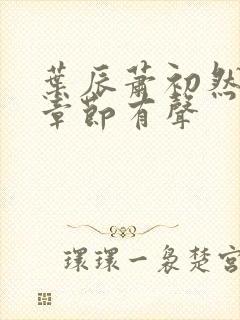 葉辰蕭初然
章節有聲
環環一裊楚宮